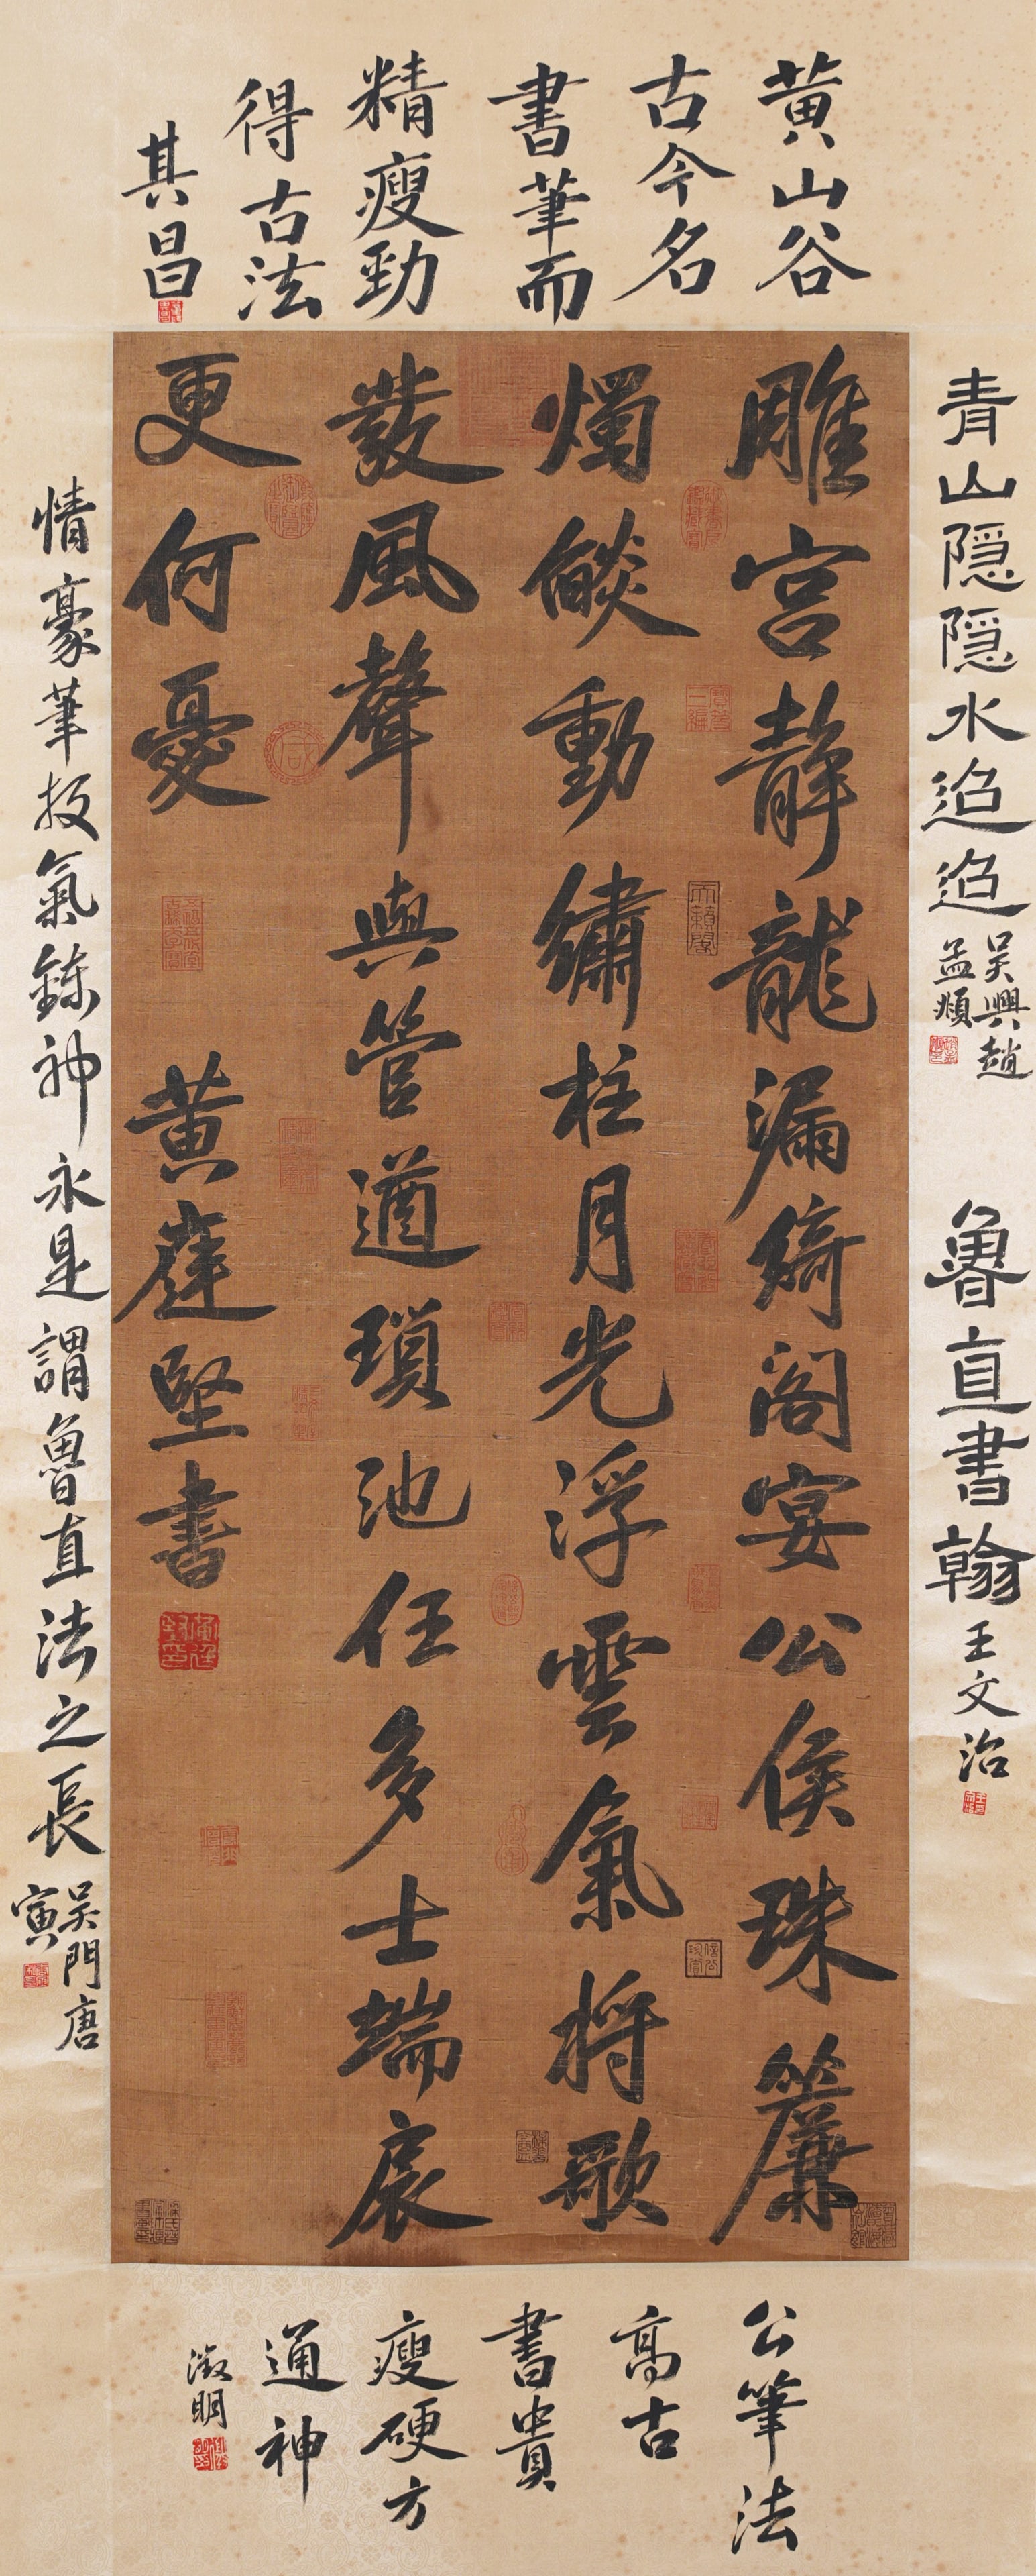 黄山谷
古今名
書筆而
精瘦勁
得古法
其昌
青山隐隐水迢迢
吴興趙
孟頫
魯直書翰
王文治
雕宫静龍漏綺阁宴公侯珠簾
燭燄動繡柱月光浮雲氣將歌
發風聲與管遒瑣池任多士端扆
更何憂
黄庭堅書
情豪筆放氣鍊神永是謂魯直法之長
吴門唐
寅
公筆法
高古
書貴
瘦硬方
通神
徵明